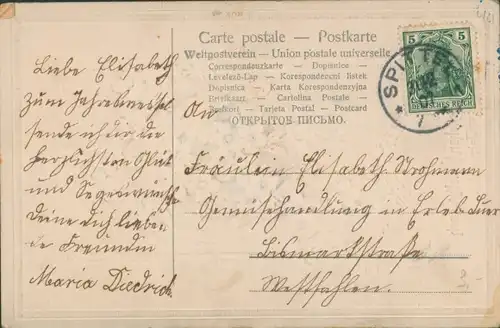 Carte postale — Postkarte
Weltpostverein — Union postale universelle
Correspondenzkarte — Dopisnice
Levelező-Lap — Korespondenční lístek
Dopisnica — Karta Korespondencyjna
Briefkaart — Cartolina Postale
Brefkort — Tarjeta Postal — Postcard
ОТКРЫТОЕ ПИСЬМО.
5 5
DEUTSCHES REICH
SPITTEL
Liebe Elisabeth
zum Jahreswechsel
sende ich dir die
herzlichsten Glück
und Segenwünsche
Deine dich lieben-
de Freundin
Maria Diedrich
An
Fräulein Elisabeth Strohmann
Gemüsehandlung in
Bismarkstraße
Westfahlen.